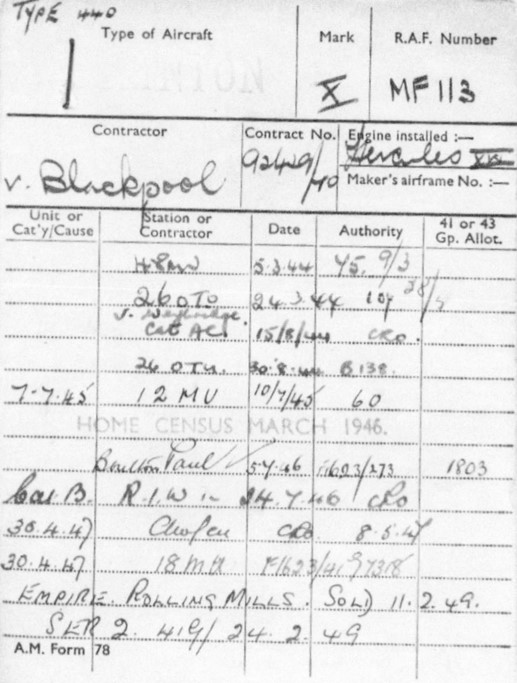 TYPE 440
Type of Aircraft Mark R.A.F. Number
X MF 113
Contractor Contract No. Engine installed :—
v. Blackpool 92429/40 Hercules
Maker's airframe No. :—
Unit or Cat'y/Cause Station or Contractor Date Authority 41 or 43 Gp. Allot.
48MU 5.3.44 45. 9/3
26 OTU 24.3.44 104
v. Weybridge
Cat AC 15/8/44 CRO.
26 OTU. 30.8.44 B138.
7-7.45 12 MU 10/7/45 60
HOME CENSUS MARCH 1946.
Boulton Paul 5.7.46 1803
Cat. B. R.I.W 24.7.46 CRO
30.4.47 CRO 8.5.47
30.4.47 18 MU
EMPIRE. ROLLING MILLS. SOLD 11.2.49.
SER 2. 419/ 24.2.49
A.M. Form 78